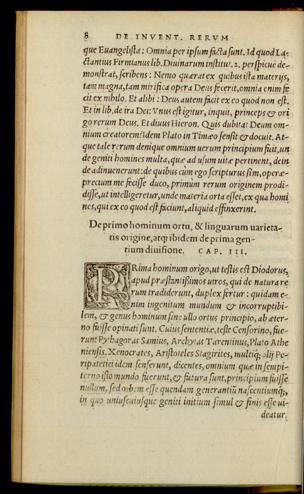 8 DE INVENT. RERVM
que Euangelista: Omnia per ipsum facta sunt. Id quod La-
ctantius Firmianus lib. Diuinarum institut. 2. perspicue de-
monstrat, scribens: Nemo quærat ex quibus ista materijs,
tam magna, tam mirifica opera Deus fecerit, omnia enim fe
cit ex nihilo. Et alibi: Deus autem facit ex eo quod non est.
Et in lib. de ira Dei: Vnus est igitur, inquit, princeps & ori
go rerum Deus. Et diuus Hieron. Quis dubitat Deum om-
nium creatorem? idem Plato in Timæo sensit & docuit. At-
que tale rerum denique omnium uerum principium fuit, un
de geniti homines multa, quæ ad usum uitæ pertinent, dein
de adinuenerunt: de quibus cùm ego scripturus sim, operæ-
precium me fecisse duco, primùm rerum originem prodi-
disse, ut intelligeretur, unde materia orta esset, ex qua homi
nes, qui ex eo quod est faciunt, aliquid effinxerint.
De primo hominum ortu, & linguarum uarieta-
tis origine, atq; ibidem de prima gen-
tium diuisione. CAP. III.
PRima hominum origo, ut testis est Diodorus,
apud præstantissimos uiros, qui de natura re
rum tradiderunt, duplex fertur: quidam e-
nim ingenitum mundum & incorruptibi-
lem, & genus hominum sine ullo ortus principio, ab æter-
no fuisse opinati sunt. Cuius sententiæ, teste Censorino, fue-
runt Pythagoras Samius, Archytas Tarentinus, Plato Athe
niensis, Xenocrates, Aristoteles Stagirites, multiq; alij Pe-
ripatetici idem senserunt, dicentes, omnium quæ in sempi-
terno isto mundo fuerunt, & futura sunt, principium fuisse
nullum, sed orbem esse quendam generantiũ nascentiumq;,
in quo uniuscuiusque geniti initium simul & finis esse ui-
deatur.